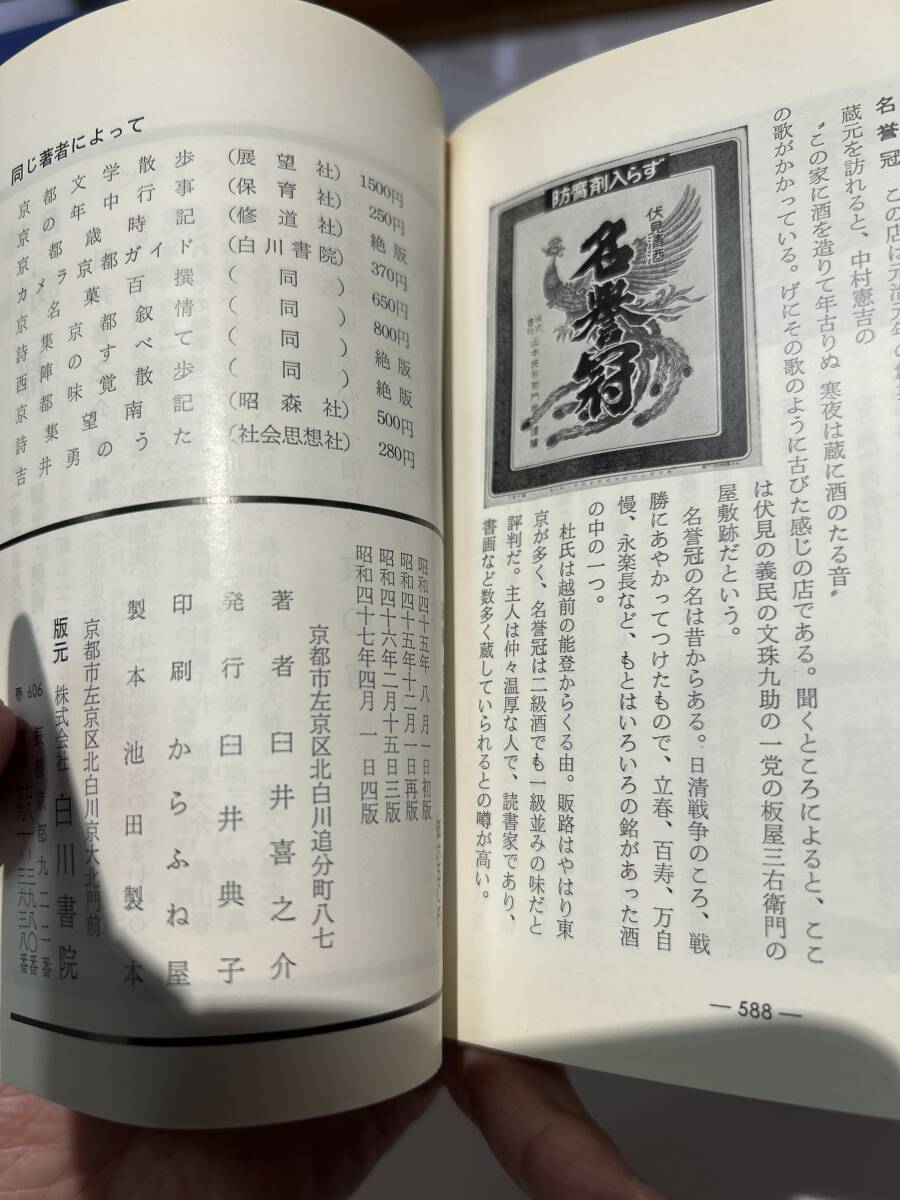 名誉冠 この店は元治元年の創
蔵元を訪れると、中村憲吉の
〝この家に酒を造りて年古りぬ 寒夜は蔵に酒のたる音〟
の歌がかかっている。げにその歌のように古びた感じの店である。聞くところによると、ここ
は伏見の義民の文珠九助の一党の板屋三右衛門の
屋敷跡だという。
名誉冠の名は昔からある。日清戦争のころ、戦
勝にあやかってつけたもので、立春、百寿、万自
慢、永楽長など、もとはいろいろの銘があった酒
の中の一つ。
杜氏は越前の能登からくる由。販路はやはり東
京が多く、名誉冠は二級酒でも一級並みの味だと
評判だ。主人は仲々温厚な人で、読書家であり、
書画など数多く蔵していられるとの噂が高い。
防腐剤入らず
伏見清酒
名誉冠
株式会社 山本長右衛門
— 588 —
同じ著者によって
京都文学散歩 (展望社) 1500円
京の年中行事 (保育社) 250円
京都歳時記 (修道社) 絶版
カメラ京都ガイド (白川書院) 370円
京名菓百撰 (同) 650円
詩集京都叙情 (同) 800円
西陣のすべて (同) 絶版
京都味覚散歩 (同) 絶版
詩集望南記 (昭森社) 500円
吉井勇のうた (社会思想社) 280円
昭和四十五年 八 月一日初版
昭和四十五年十二月一日再版
昭和四十六年二月十五日三版
昭和四十七年四月 一 日四版
京都市左京区北白川追分町八七
著者 臼井喜之介
発行 臼井典子
印刷 からふね屋
製本 池田製本
京都市左京区北白川京大北門前
版元 株式会社 白川書院
606 振替京都九二二番
七八一—三九八〇番
七九一—三六三八番